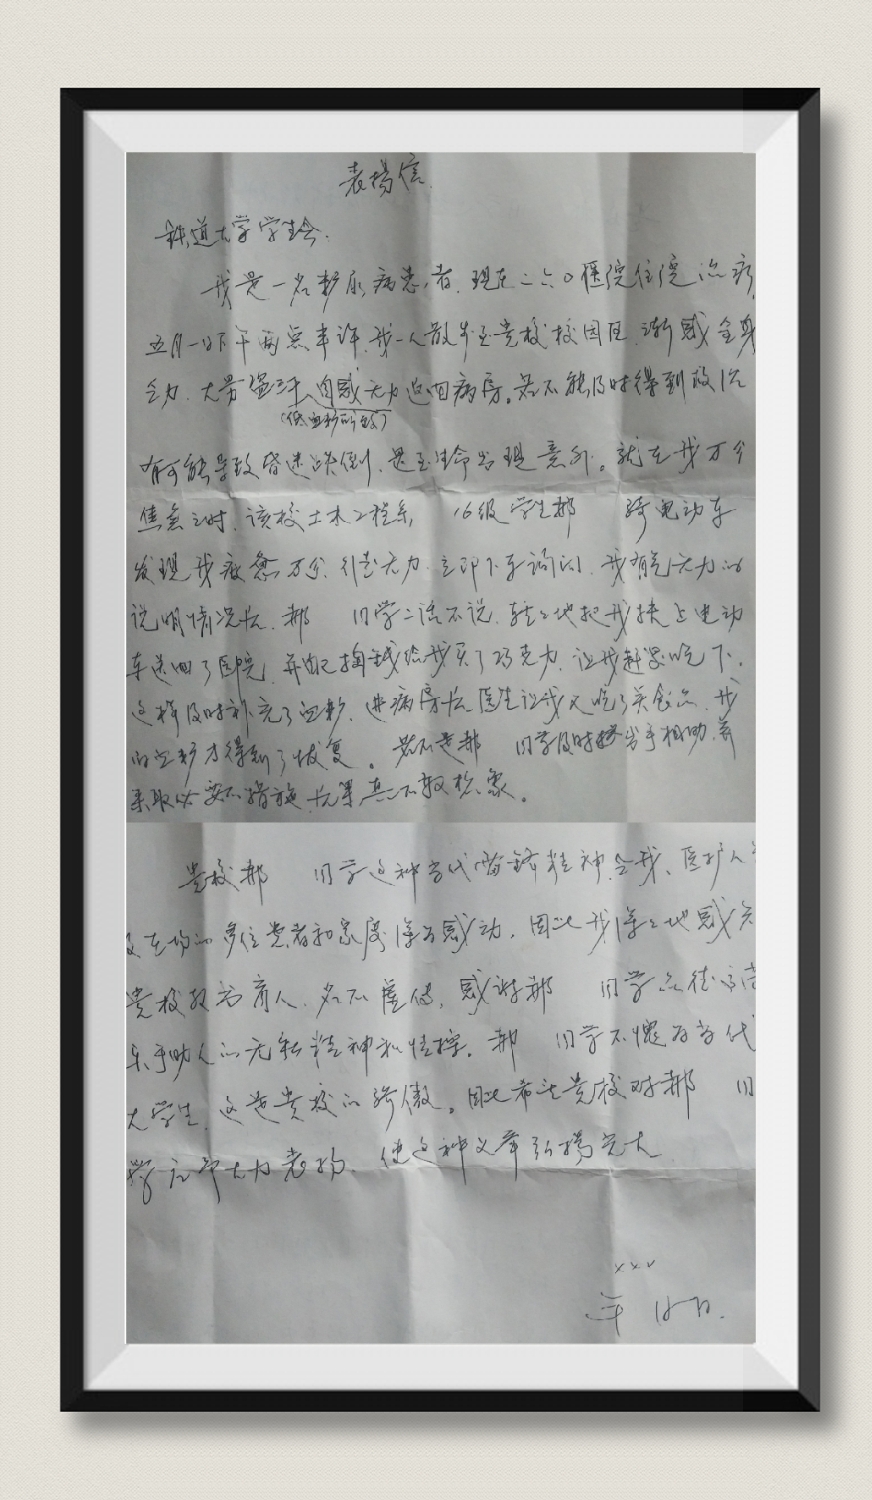 表揚信.
鉄道大学学生会.
我是一名糖尿病患者.现在二六〇医院住院治疗
五月一日下午两点半许.我一人散步至贵校校园里.渐感全身
乏力.大汗 自感无力返回病房。若不能及时得到救治
(低血糖所致)
有可能导致昏迷跌倒.甚至生命出现意外。就在我万分
焦急之时.该校土木工程系 16级学生郝 骑电动车
发现我疲惫万分.行走无力.立即下车询问.我有气无力的
说明情况后.郝 同学二话不说.轻轻地把我扶上电动
车送回了医院.并自己掏钱给我买了巧克力.让我赶紧吃下.
这样及时补充了血糖.进病房后医生让我又吃了些食品.我
的血糖才得到了恢复。若不是郝 同学及时 出手相助.并
采取必要的措施.后果真不敢想象。
贵校郝 同学这种当代雷锋精神.令我、医护人
及在场的多位患者和家属深为感动.因此我深深地感谢
贵校教书育人.名不虚传.感谢郝 同学品德高尚
乐于助人的无私精神和情操。郝 同学不愧为当代
大学生.这也是贵校的骄傲。因此希望贵校对郝 同
学 大力表扬.使这种 弘揚光大
xxx
年 月 日.